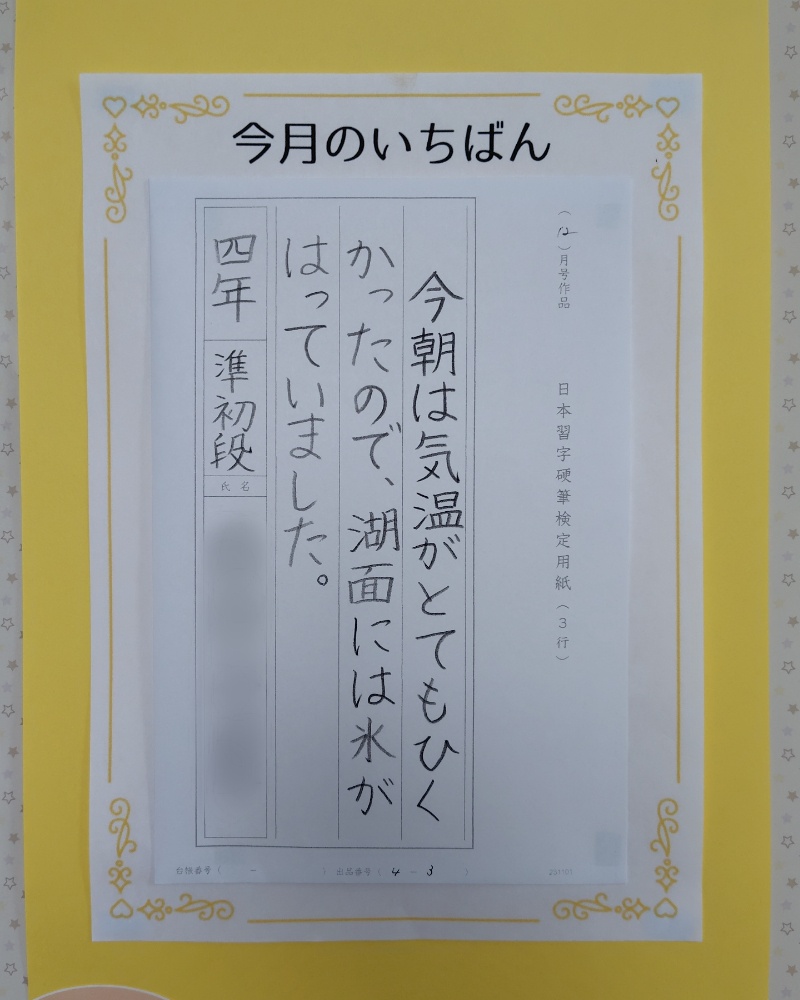 今月のいちばん
（12）月号作品　日本習字硬筆検定用紙（3行）
今朝は気温がとてもひく
かったので、湖面には氷が
はっていました。
四年 準初段 氏名
台帳番号（　－　） 出品番号（ 4 － 3 ）